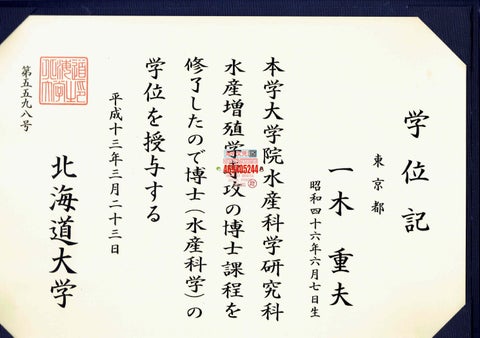 学位記
東京都
一木 重夫
昭和四十六年六月七日生
本学大学院水産科学研究科
水産増殖学専攻の博士課程を
修了したので博士(水産科学)の
学位を授与する
平成十三年三月二十三日
北海道大学
第五五九八号